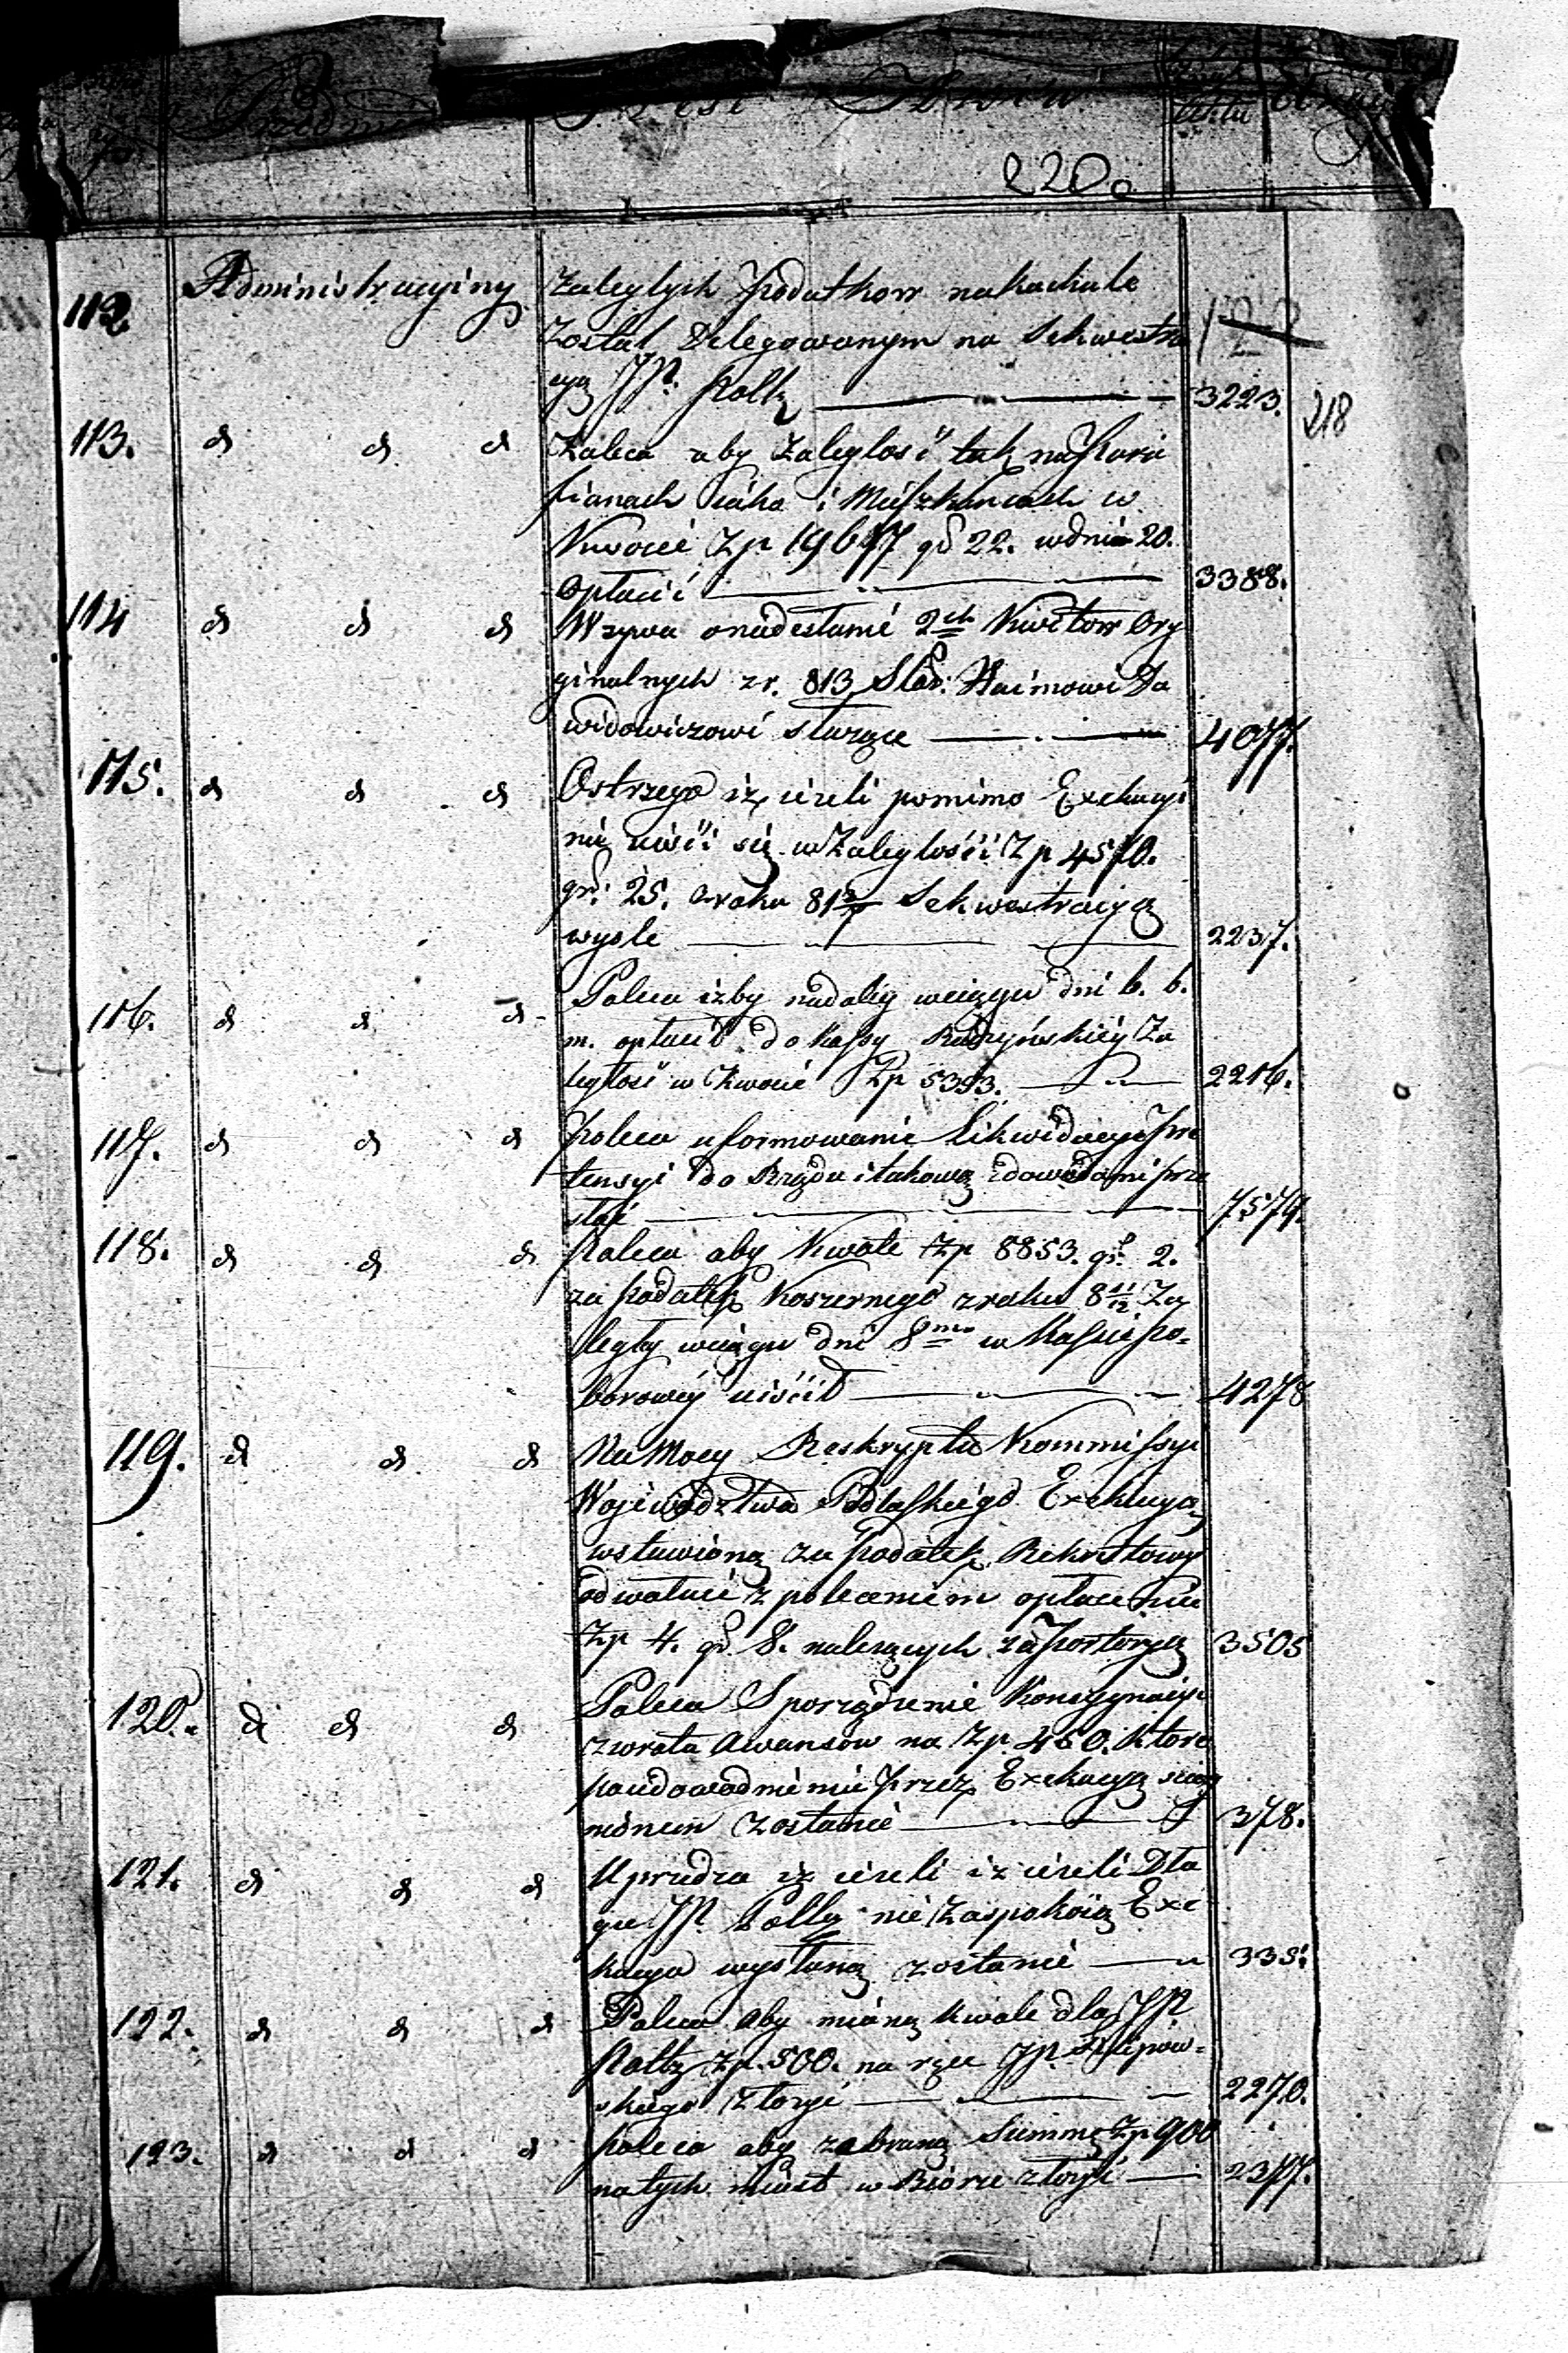 Przedmi
Treść Dziów
Aktu
220
112 Administracyiny zaległych podatkow na Kachale
został Delegowanym na Sekwestra
cyą JP. Koltz 3223. 218
113. d d d Zaleca aby Zaległość tak na Starui
pianach iako i Mieszkancach w
Kwocie Zp 19647 gr 22. w dni 20.
opłacić 3388.
114 d d d Wzywa o nadesłanie 2ch Kwitow Ory
ginalnych z r. 813 Star. Haimowi Da
widowiczowi służące 4077.
115. d d d Ostrzega iż ieżeli pomimo Exekucyi
nie uiści się w Zaległości Zp 4570.
gr: 25. z roku 81 Sekwestracyą
wyśle 2237.
116. d d d Poleca iżby nadaley w ciągu dni 6. b.
m. opłacił do Kassy Radzyńskiey Za
ległość w Kwocie Zp 5393. 2216.
117. d d d Poleca uformowanie Likwidacyi Pre
tensyi do Rządu i takową z dowodami prze
słać 7579.
118. d d d Poleca aby Kwotę Zp 8853. gr. 2.
za podatek Koszernego z roku 8 11/12 Za
legły w ciągu dni 8mio w Kassie Po-
borowey uiścił 4278
119. d d d Na Mocy Reskryptu Kommissyi
Wojewodztwa Podlaskiego Exekucyą
wstawioną za podatek Rekrutowy
odwołuie z poleceniem opłacenia
Zp 4. gr 8. należących za Portoryą 3505
120. d d d Poleca Sporządzenie Konsygnacyi
zwrotu Awansow na Zp. 460. Ktore
poudowodnieniu przez Exekucyą
nionem zostanie 378.
121. d d d Uprzedza iż ieżeli iż ieżeli Dłu
gu JP. Koltz nie zaspokoią Exe
kucya wysłaną zostanie 335.
122. d d d Poleca aby mianą kwotę dla JP
Koltz Zp. 500. na ręce JP. Filipow-
skiego złożyć 2270.
123. d d d Poleca aby zabraną Summę Zp 900
natych miast w Biorze złożyć 2377.